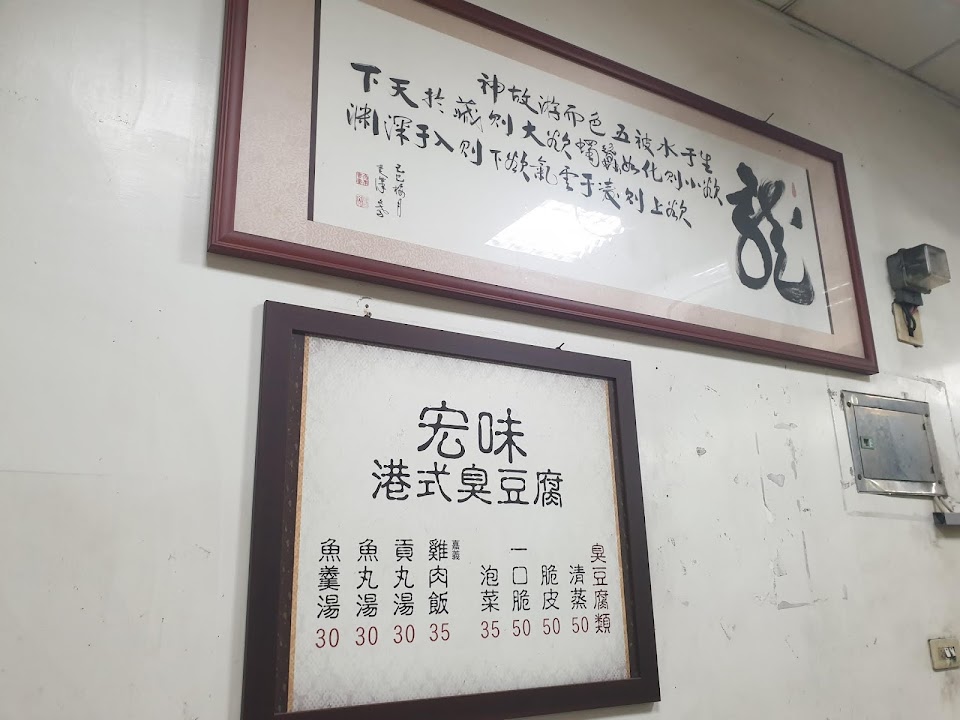 龍
生于水被五色而游故神
欲小則化如蠶蠋欲大則藏於天下
欲上則凌于雲氣欲下則入于深淵
宏味
港式臭豆腐
臭豆腐類
清蒸 50
脆皮 50
一口脆 50
泡菜 35
嘉義
雞肉飯 35
貢丸湯 30
魚丸湯 30
魚羹湯 30